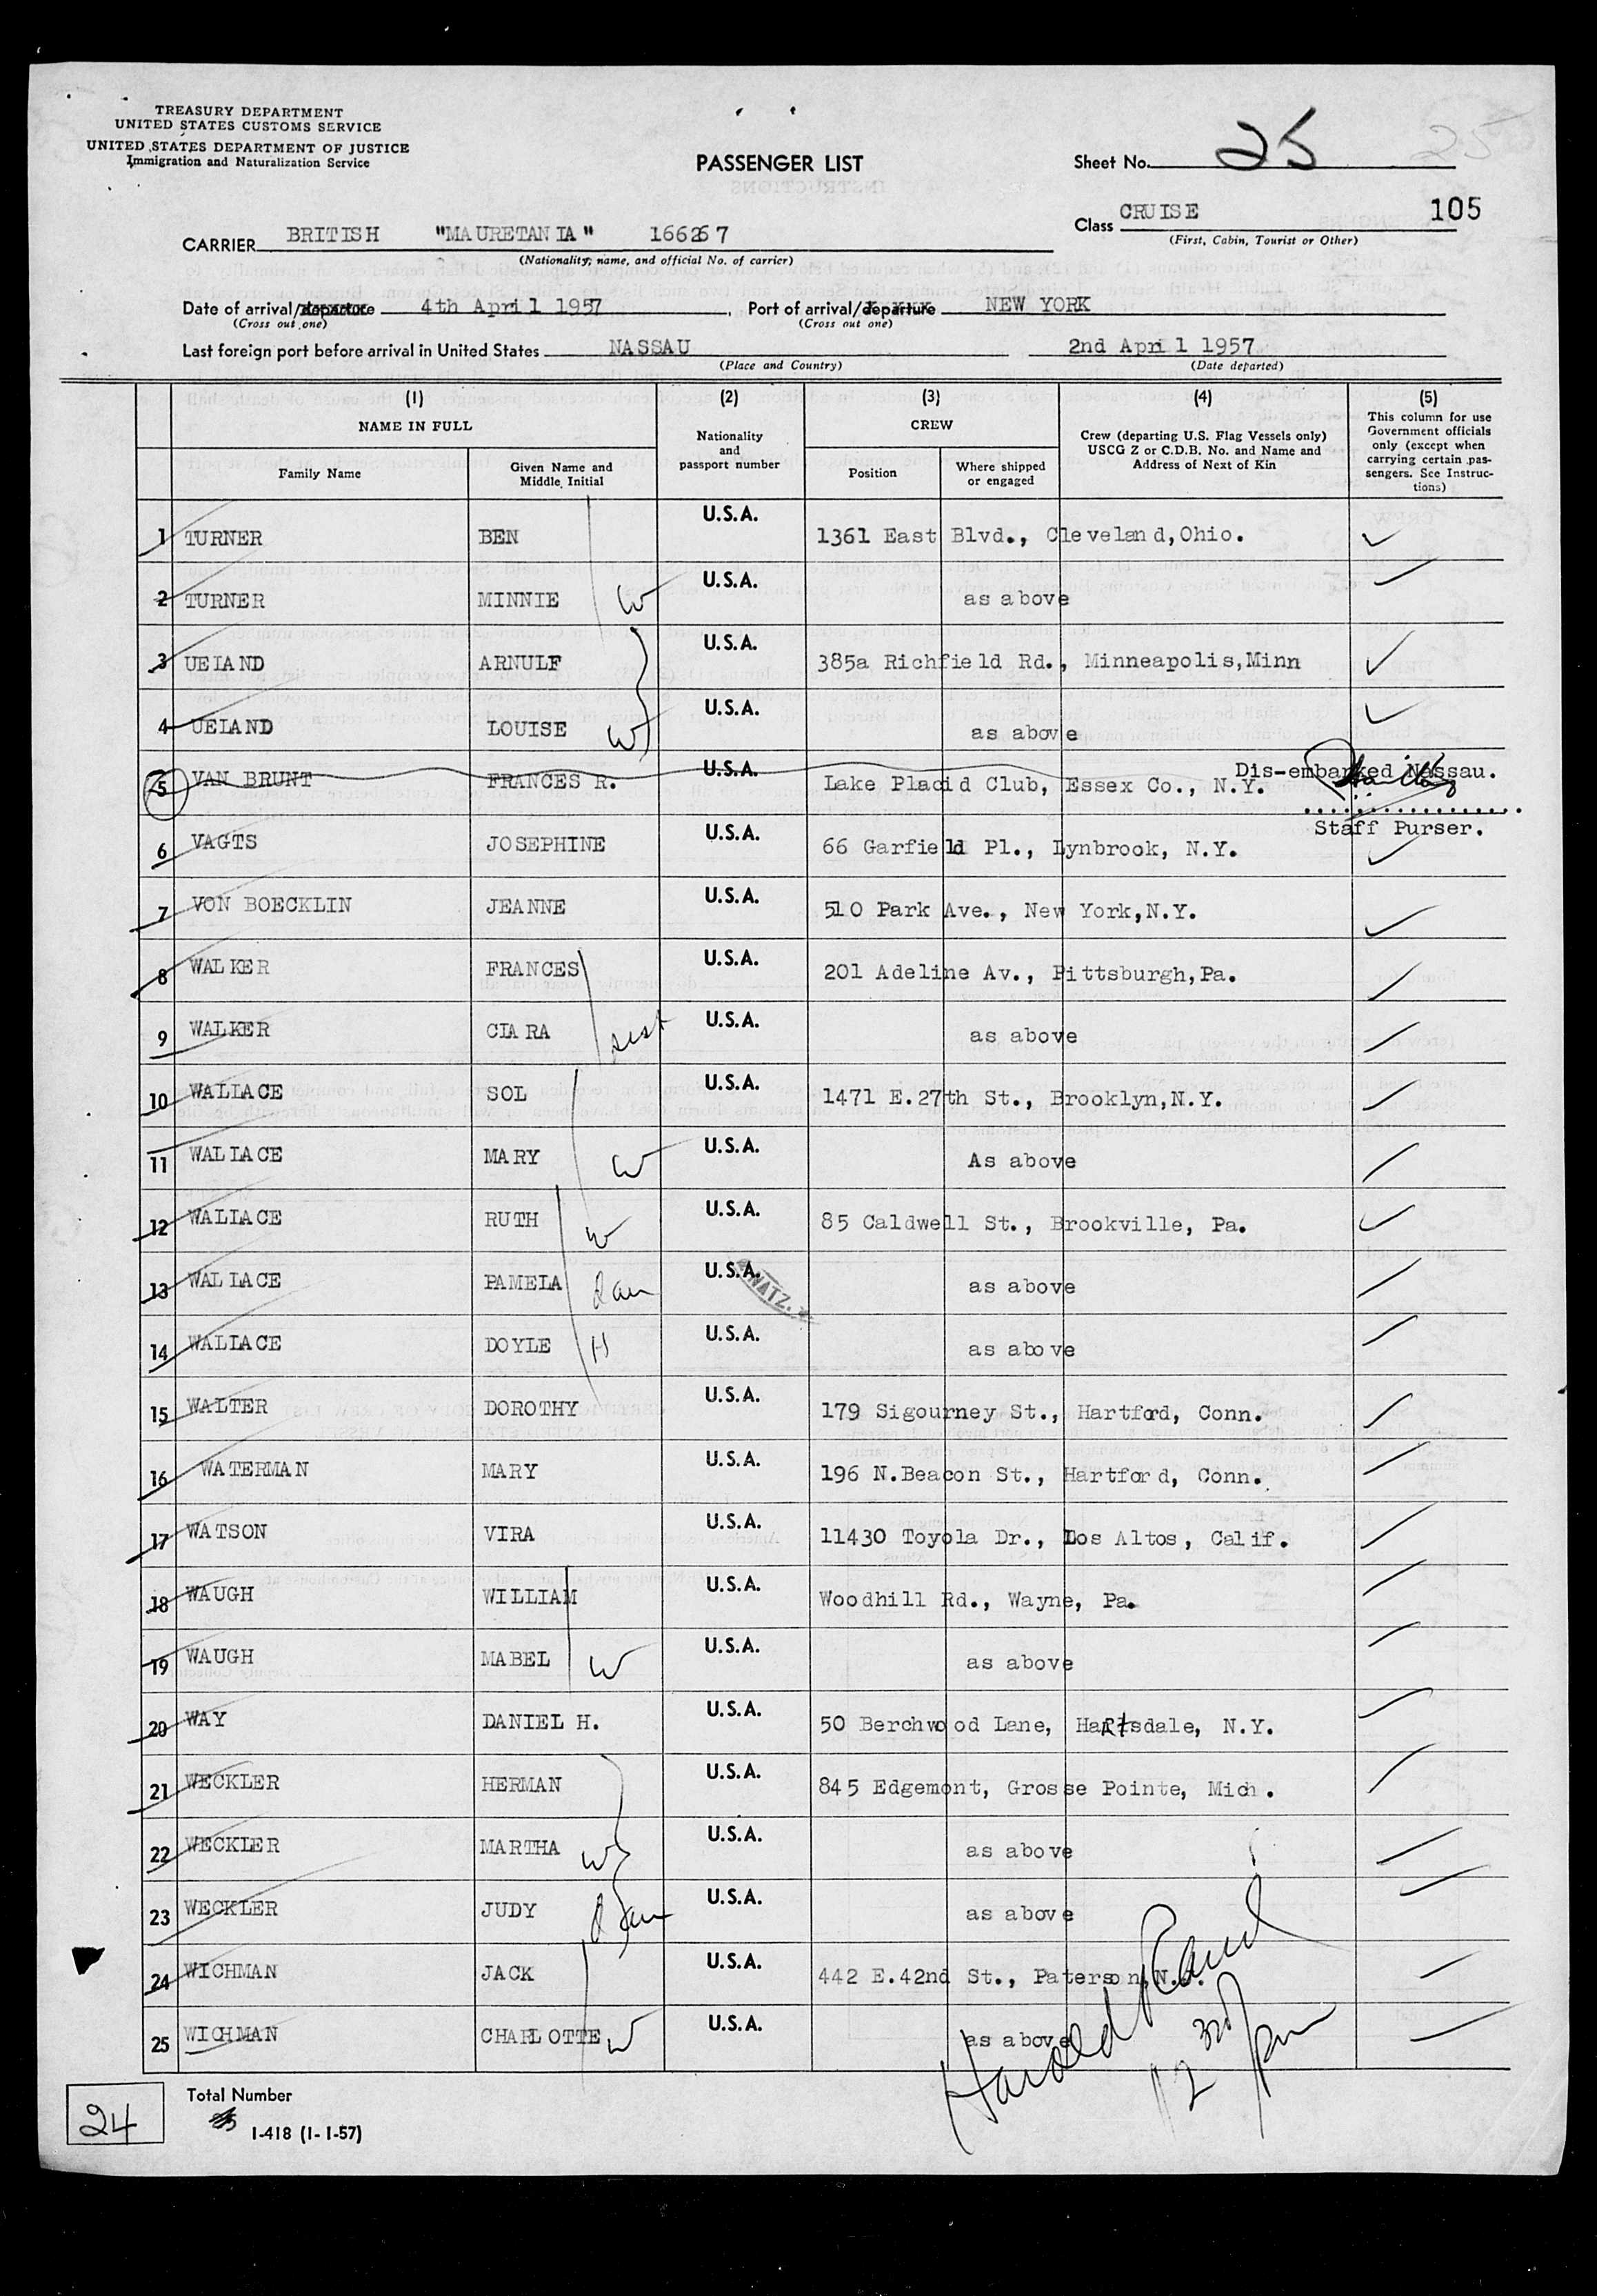 TREASURY DEPARTMENT
UNITED STATES CUSTOMS SERVICE
UNITED STATES DEPARTMENT OF JUSTICE
Immigration and Naturalization Service
PASSENGER LIST
Sheet No. 25 25
Class CRUISE 105
(First, Cabin, Tourist or Other)
CARRIER BRITISH "MAURETANIA" 166267
(Nationality, name, and official No. of carrier)
Date of arrival/departure 4th April 1957, Port of arrival/departure NEW YORK
(Cross out one) (Cross out one)
Last foreign port before arrival in United States NASSAU 2nd April 1957
(Place and Country) (Date departed)
(1) (2) (3) (4) (5)
NAME IN FULL
Family Name
Given Name and Middle Initial
Nationality and passport number
CREW
Position
Where shipped or engaged
Crew (departing U.S. Flag Vessels only) USCG Z or C.D.B. No. and Name and Address of Next of Kin
This column for use Government officials only (except when carrying certain passengers. See Instructions)
1 TURNER BEN U.S.A. 1361 East Blvd., Cleveland,Ohio.
2 TURNER MINNIE W U.S.A. as above
3 UELAND ARNULF U.S.A. 385a Richfield Rd., Minneapolis,Minn
4 UELAND LOUISE W U.S.A. as above
5 VAN BRUNT FRANCES R. U.S.A. Lake Placid Club, Essex Co., N.Y. Dis-embarked Nassau.
Staff Purser.
6 VAGTS JOSEPHINE U.S.A. 66 Garfield Pl., Lynbrook, N.Y.
7 VON BOECKLIN JEANNE U.S.A. 510 Park Ave., New York,N.Y.
8 WALKER FRANCES U.S.A. 201 Adeline Av., Pittsburgh,Pa.
9 WALKER CLARA sist U.S.A. as above
10 WALLACE SOL U.S.A. 1471 E.27th St., Brooklyn,N.Y.
11 WALLACE MARY W U.S.A. As above
12 WALLACE RUTH W U.S.A. 85 Caldwell St., Brookville, Pa.
13 WALLACE PAMELA dau U.S.A. as above
14 WALLACE DOYLE H U.S.A. as above
15 WALTER DOROTHY U.S.A. 179 Sigourney St., Hartford, Conn.
16 WATERMAN MARY U.S.A. 196 N.Beacon St., Hartford, Conn.
17 WATSON VIRA U.S.A. 11430 Toyola Dr., Los Altos, Calif.
18 WAUGH WILLIAM U.S.A. Woodhill Rd., Wayne, Pa.
19 WAUGH MABEL W U.S.A. as above
20 WAY DANIEL H. U.S.A. 50 Berchwood Lane, Hartsdale, N.Y.
21 WECKLER HERMAN U.S.A. 845 Edgemont, Grosse Pointe, Mich.
22 WECKLER MARTHA W U.S.A. as above
23 WECKLER JUDY dau U.S.A. as above
24 WICHMAN JACK U.S.A. 442 E.42nd St., Paterson,N.J.
25 WICHMAN CHARLOTTE W U.S.A. as above
Harold
12 30 pm
24
Total Number
I-418 (1-1-57)